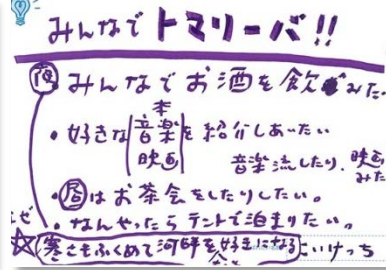 みんなで トマリーバ!!
夜 みんなでお酒を飲みた
・好きな 本 音楽 映画 を紹介しあいたい
音楽流したり、映画みた
・昼はお茶会をしたりしたい。
・なんやったらテントで泊まりたい。
☆寒さもふくめて河畔を好きになる